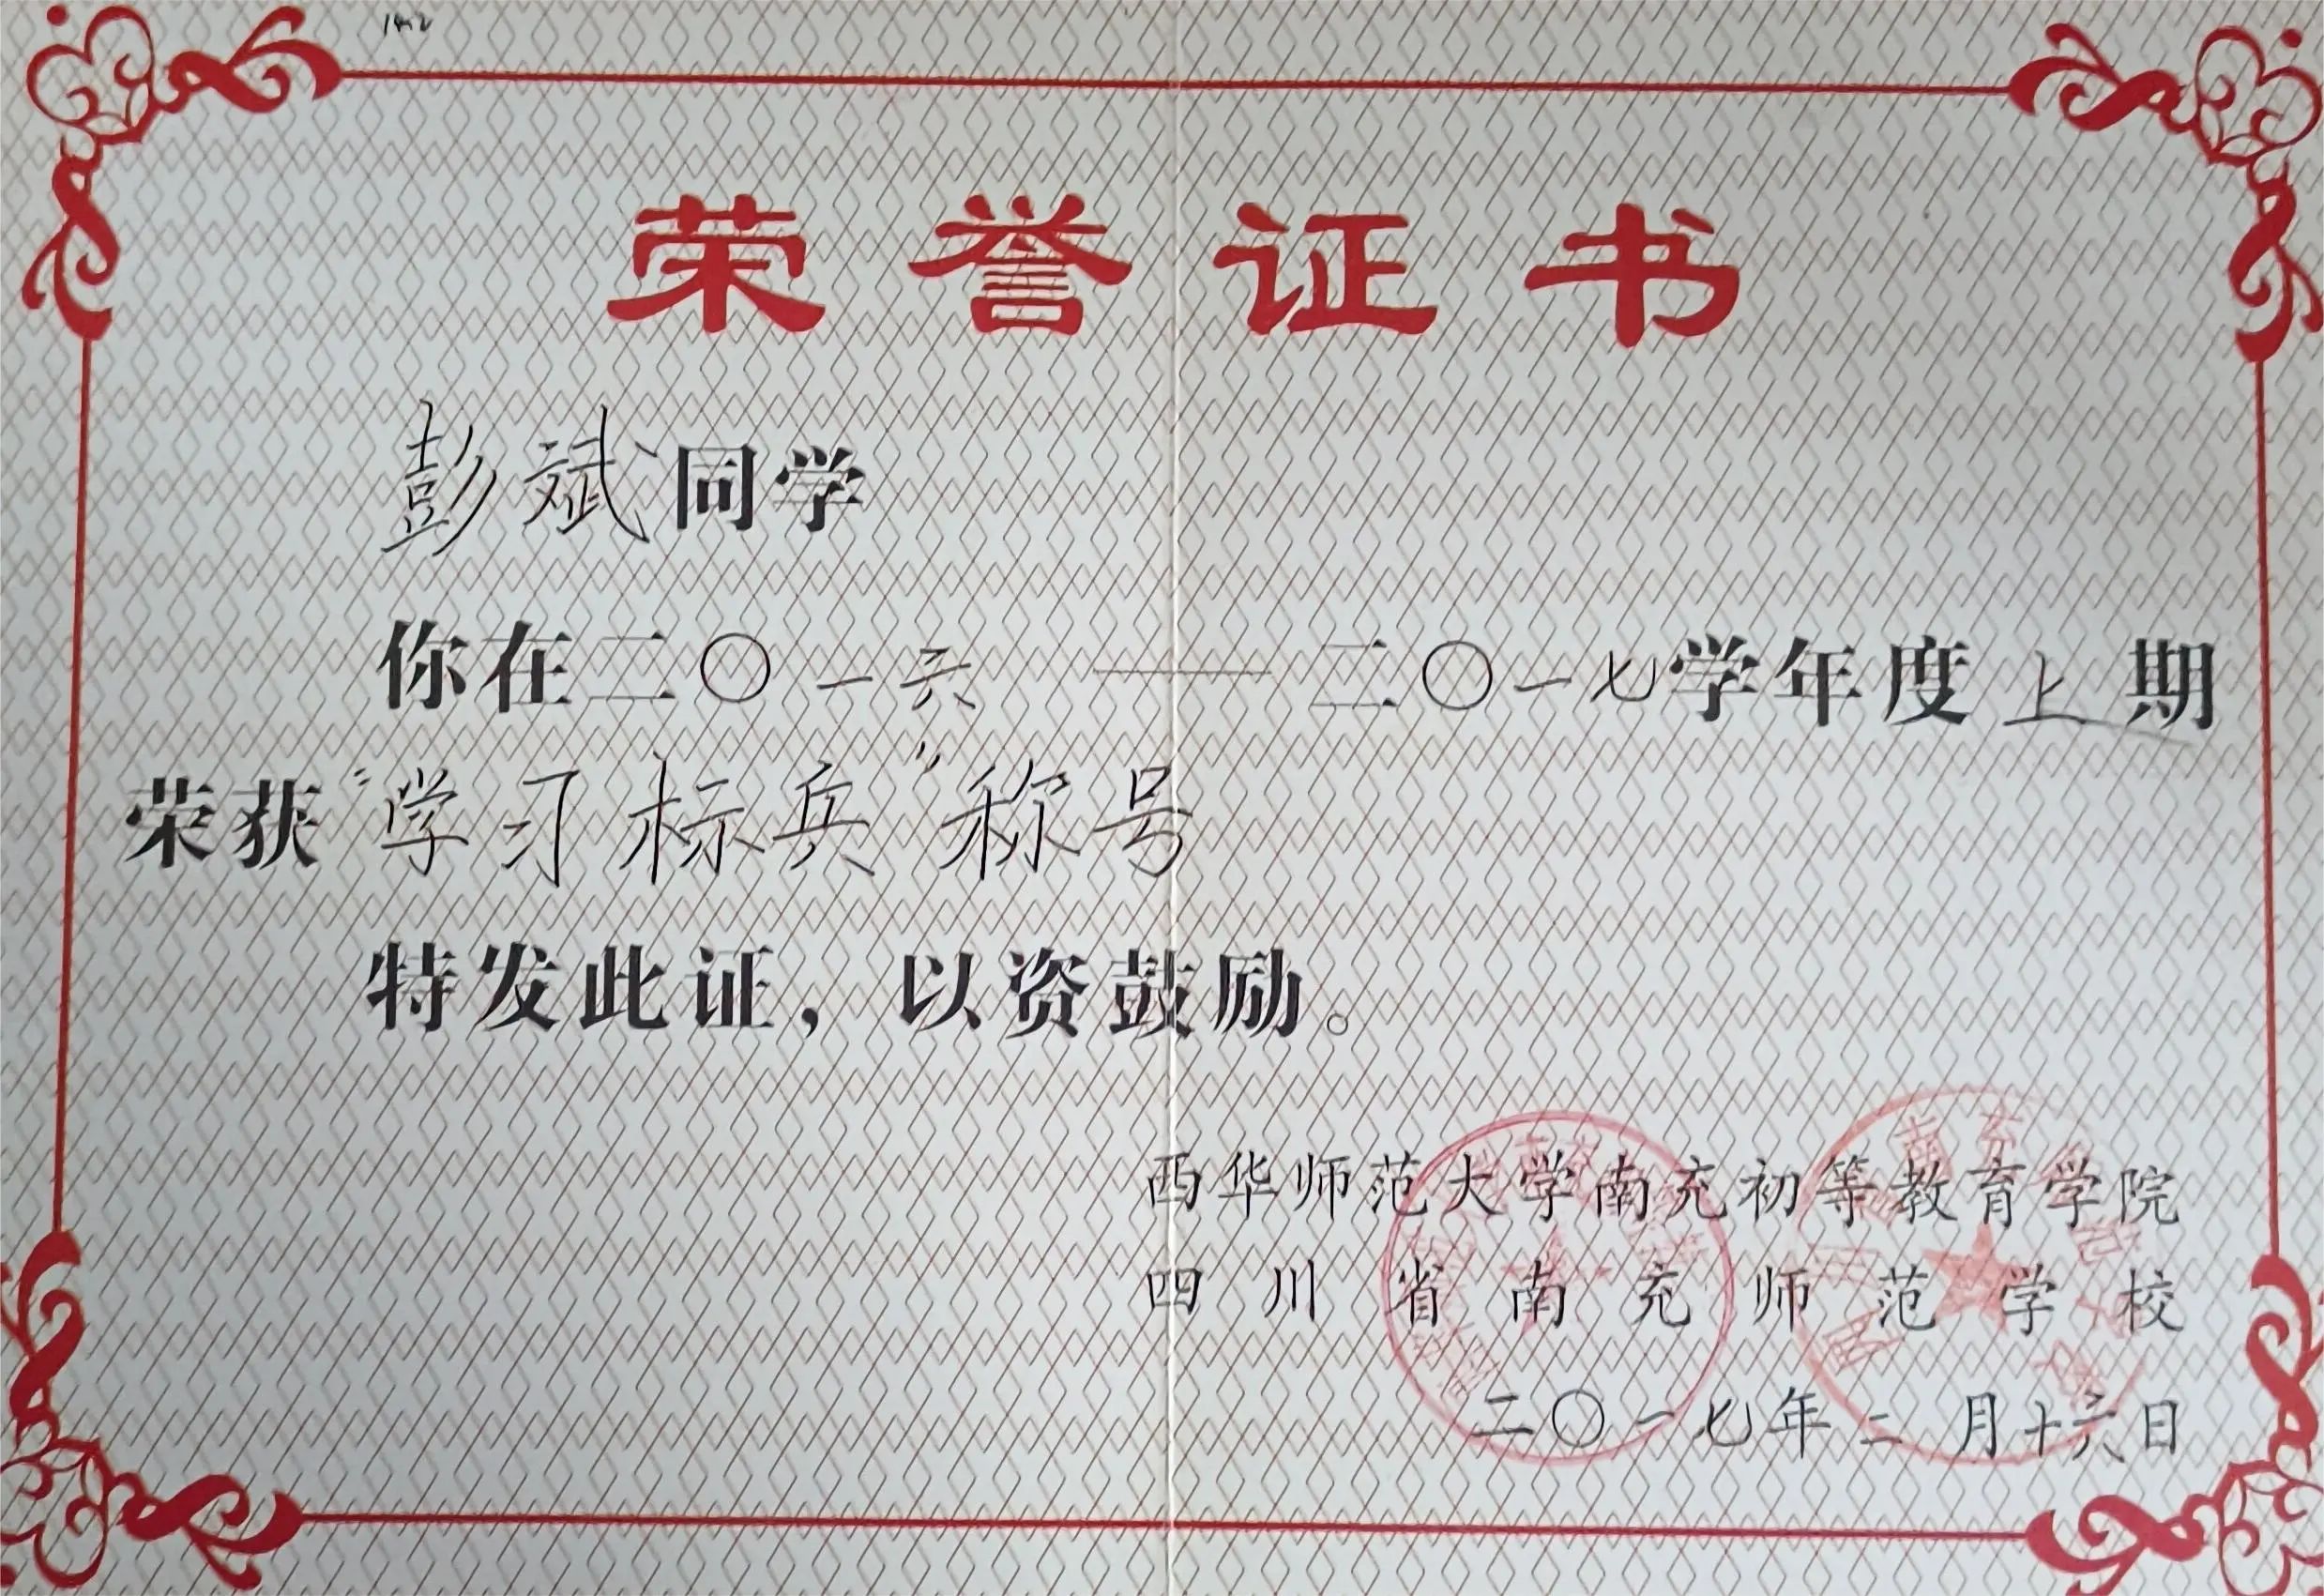 荣誉证书
彭斌同学
你在二〇一六——二〇一七学年度上期
荣获“学习标兵”称号
特发此证，以资鼓励。
西华师范大学南充初等教育学院
四川省南充师范学校
二〇一七年二月十六日